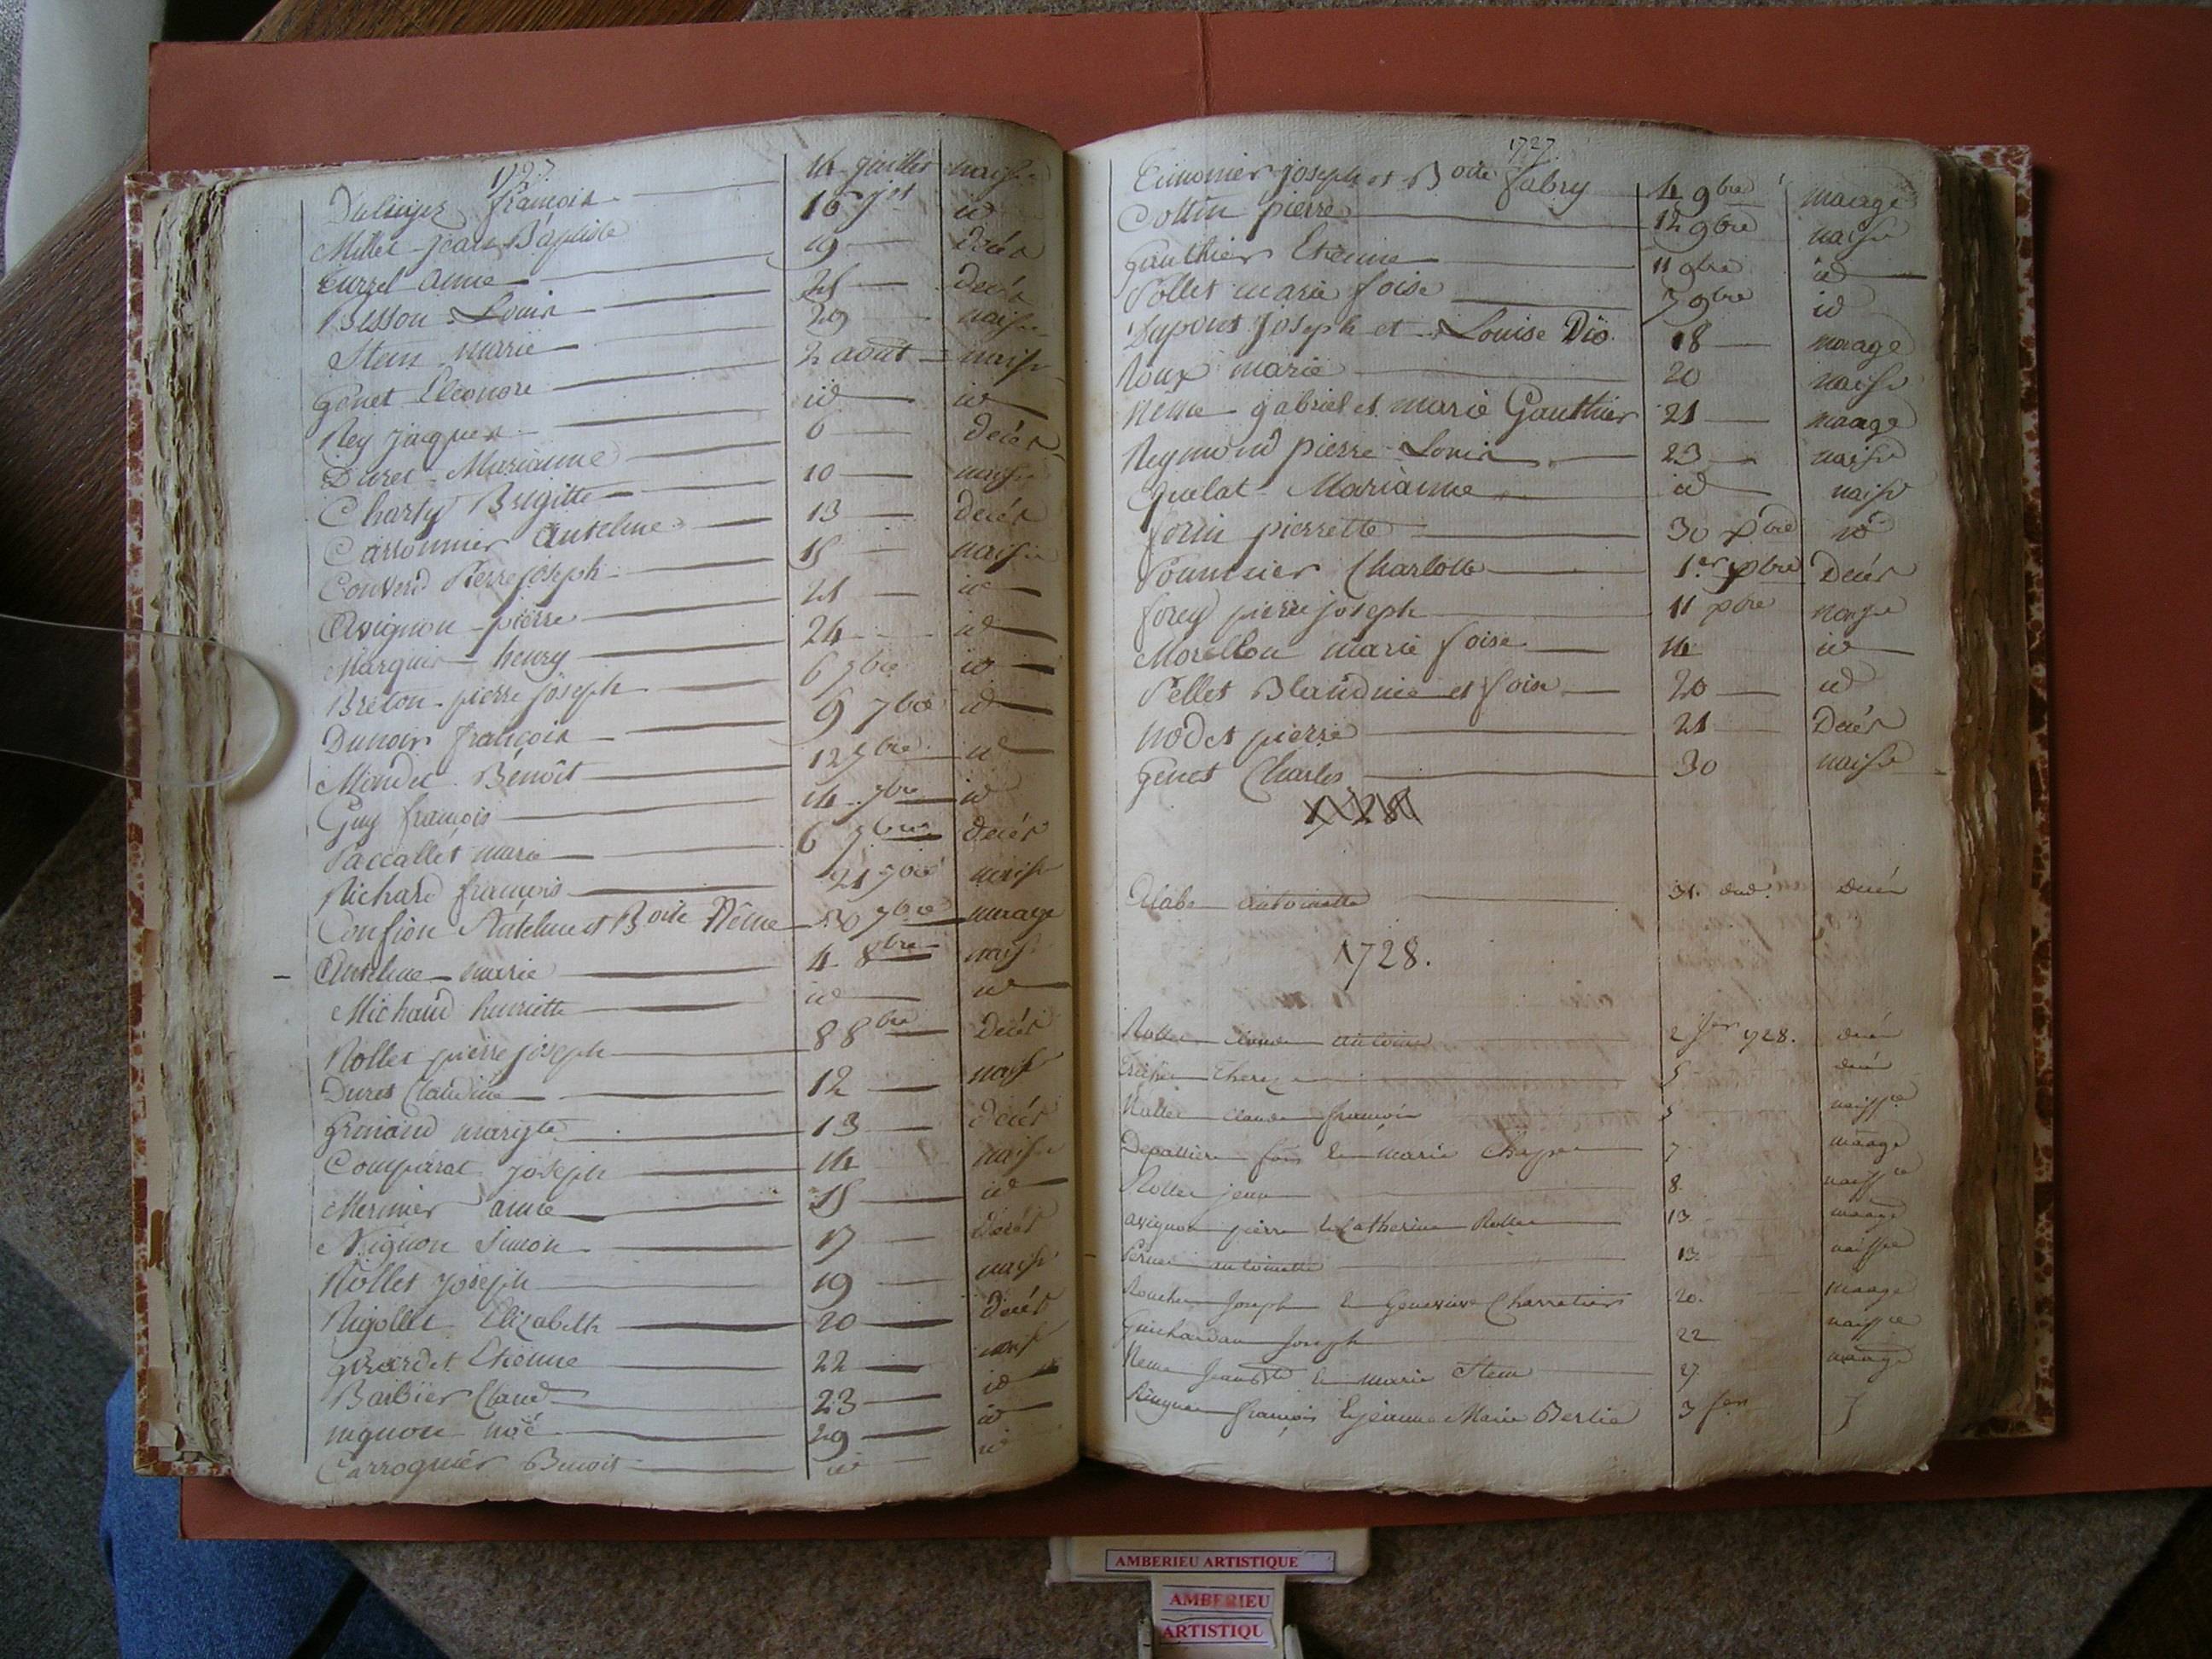 1727.
Dulinje françois 14 juillet naisse
Millet jean Baptiste 16 jet id
Curzel anne 19 décés
Besson Louis 25 decés
Sten marie 29 naisse
Genet Eleonore 2 août naisse
Rey jacques id id
Duret Marianne 6 decés
Charty Brigitte 10 naisse
Carronnier antelme 13 decés
Convers Pierre joseph 15 naisse
Avignon pierre 21 id
Marquis henry 24 id
Breton pierre joseph 6 7bre id
Dunoir françois 9 7bre id
Mondet Bénoît 12 7bre id
Guy françois 14 7bre id
Paccallet marie 6 7bre decés
Richard françois 21 7bre naisse
Confion Antelme et Boite Nême 30 7bre mraage
Antelme marie 4 8bre naisse
Michaud henriette id id
Rollet pierre joseph 8 8bre decés
Duret Claudine 12 naisse
Grinand margte 13 decés
Comparat joseph 14 naisse
Mermier anne 15 id
Nignon Simon 17 decés
Rollet Joseph 19 naisse
Rigollet Elizabeth 20 decés
Girardet Etienne 22 naisse
Barbier Claud 23 id
nignon noé 29 id
Carrognier Benoit id id
1727.
joseph et Boite fabry 14 9bre maage
Collin pierre 12 9bre naisse
Gauthier Etienne 11 9bre id
Pollet marie foise 7 9bre id
Dupont Joseph et Louise Dio 18 maage
Roux marie 20 naisse
Neme gabriel et marie Gauthier 21 maage
Reymond pierre Louis 23 naisse
Quelat Marianne id naisse
forin pierrette 30 9bre id
Pommier Charlotte 1.er xbre Decés
forey pierre joseph 11 xbre naisse
Morellon marie foise 14 id
Pellet Blandine et foise 20 id
Nodet pierre 21 Decés
Genet Charles 30 naisse
antoinette 31. dud. decés
1728.
Rollet claude antoine 2 jer 1728. decés
Thereze 5 decés
Rollet claude françois 5 naissce
Depallière fois & marie 7 maage
Rollet jean 8. naissce
avignon pierre & Catherine Rollet 13. maage
antoinette 13. naissce
Joseph & Genevieve Charretier 20. maage
Guichardan Joseph 22 naissce
Neme Jean Bte & marie Sten 27. maage
françois & jeanne Marie Berlie 3 fer
AMBERIEU ARTISTIQUE
AMBERIEU
ARTISTIQU